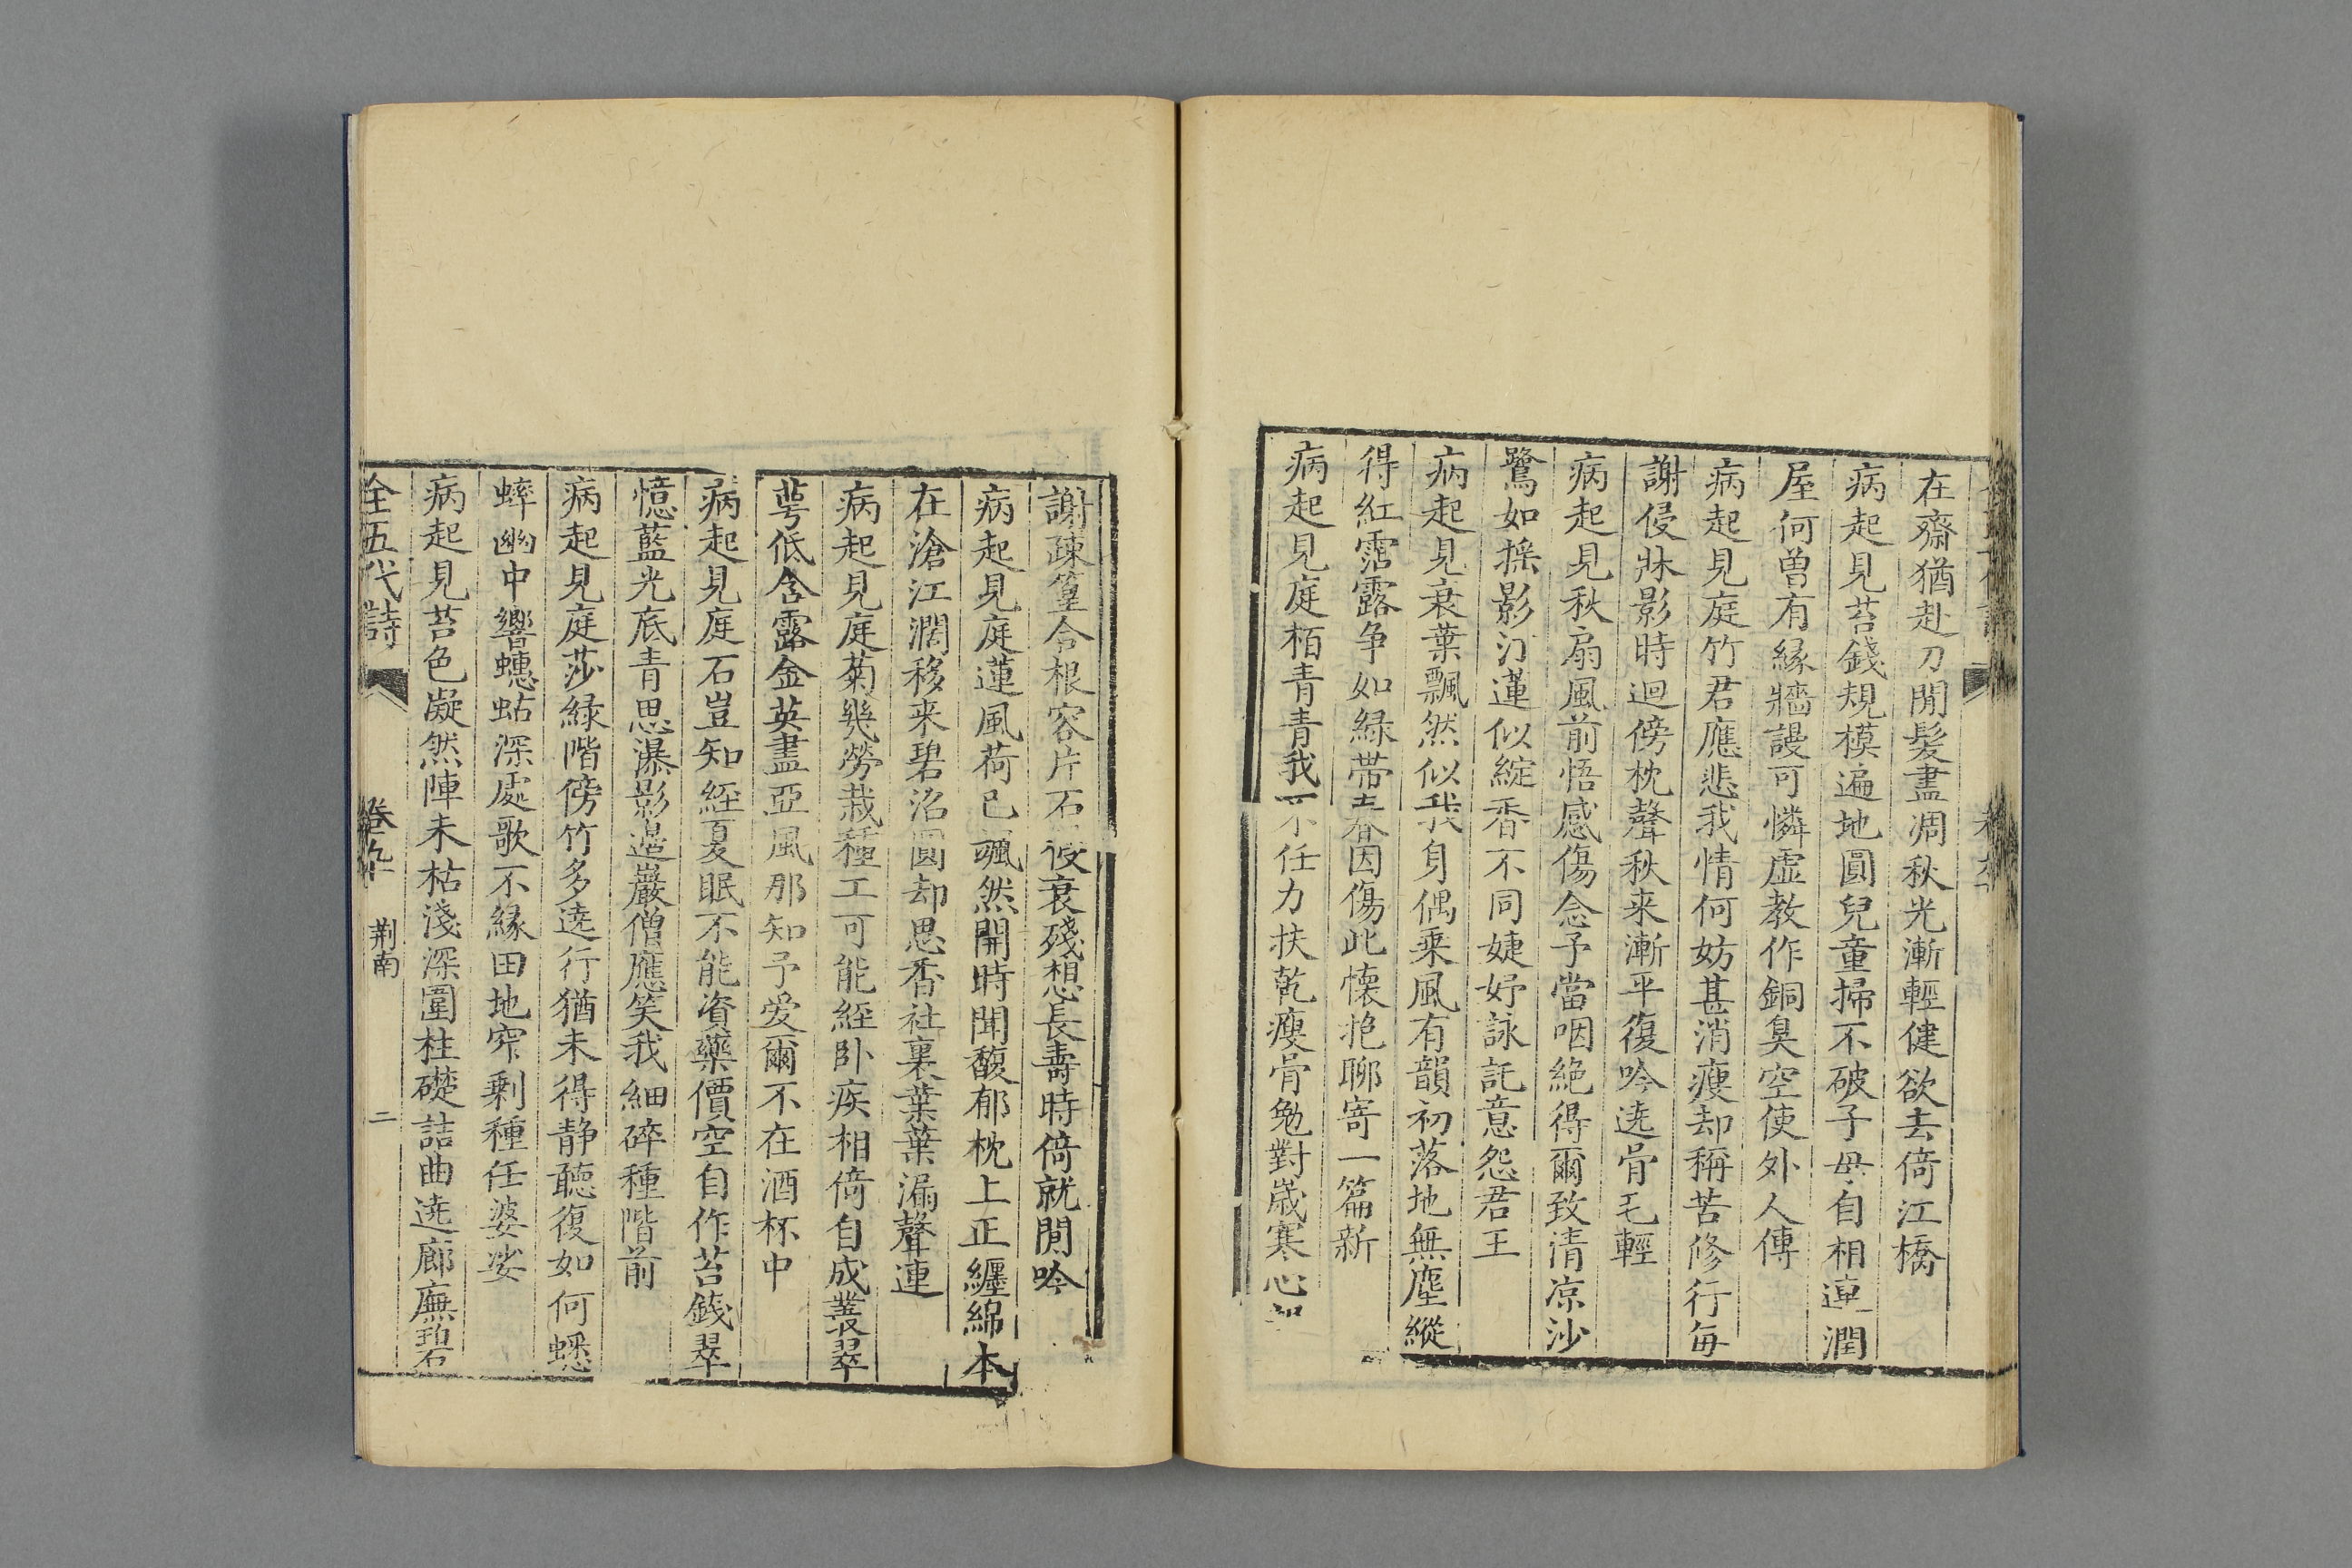 在齋猶赴刀閒髮盡凋秋光漸輕健欲去倚江橋
病起見苔錢規模遍地圓兒童掃不破子母自相連潤
屋何曾有緣牆謾可憐虛教作銅臭空使外人傳
病起見庭竹君應悲我情何妨甚消瘦却稱苦修行每
謝侵牀影時迴傍枕聲秋来漸平復吟遶骨毛輕
病起見秋扇風前悟感傷念予當咽絶得爾致清凉沙
鷺如揺影汀蓮似綻香不同婕妤詠託意怨君王
病起見衰葉飄然似我身偶乘風有韻初落地無塵縱
得紅霑露争如緑帶春因傷此懷抱聊寄一篇新
病起見庭栢青青我不任力扶乾瘦骨勉對歲寒心
謝疎篁合根容片石衰殘想長壽時倚就閒吟
病起見庭蓮風荷已颯然開時聞馥郁枕上正纏綿本
在滄江濶移来碧沼圓却思香社裏葉葉漏聲連
病起見庭菊幾勞栽種工可能経卧疾相倚自成叢翠
萼低含露金英盡亞風那知予爱爾不在酒杯中
病起見庭石豈知経夏眠不能資藥價空自作苔錢翠
憶藍光底青思瀑影邉巖僧應笑我細碎種階前
病起見庭莎緑階傍竹多遶行猶未得静聽復如何蟋
蟀幽中響蟪蛄深處歌不縁田地窄剩種任婆娑
病起見苔色凝然陣未枯淺深圍柱礎詰曲遶廊廡碧
全五代詩 卷九十 荆南 二